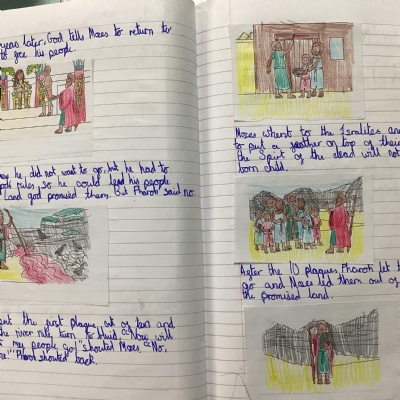 years later, God tells Moses to return to
to free his people.
he, did not want to go, but he had to
rules, so he could lead his people
Land god promised them. But Pharoh said no.
sent the first plague, out of
the river nile, turn to blud, "Now will
my people go" shouted Moses "No,
" Pharoh shouted back.
Mozes whent to the Isralites and
to put a feather on top of their
the Spirit of the dead will not
born child.
After the 10 plagues Pharoh let
go and Mozes led them out of
the promised land.